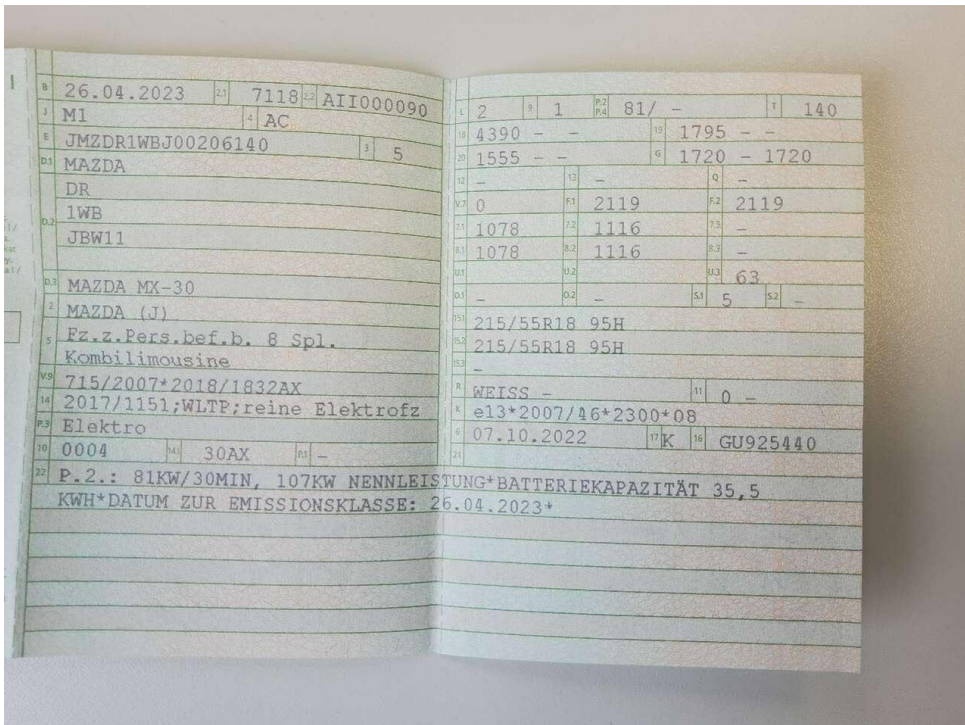 B 26.04.2023 2.1 7118 2.2 AII000090
J M1 4 AC
E JMZDR1WBJ00206140 3 5
D.1 MAZDA
DR
D.2 1WB
JBW11
D.3 MAZDA MX-30
2 MAZDA (J)
5 Fz.z.Pers.bef.b. 8 Spl.
Kombilimousine
V.9 715/2007*2018/1832AX
14 2017/1151;WLTP;reine Elektrofz
P.3 Elektro
10 0004 14.1 30AX P.1 -
L 2 9 1 P.2 P.4 81/ - T 140
18 4390 - - 19 1795 - -
20 1555 - - G 1720 - 1720
12 - 13 - Q -
V.7 0 F.1 2119 F.2 2119
7.1 1078 7.2 1116 7.3 -
8.1 1078 8.2 1116 8.3 -
U.1 U.2 U.3 63
O.1 - O.2 - S.1 5 S.2 -
15.1 215/55R18 95H
15.2 215/55R18 95H
15.3 -
R WEISS - 11 0 -
K e13*2007/46*2300*08
6 07.10.2022 17 K 16 GU925440
21
22 P.2.: 81KW/30MIN, 107KW NENNLEISTUNG*BATTERIEKAPAZITÄT 35,5
KWH*DATUM ZUR EMISSIONSKLASSE: 26.04.2023*